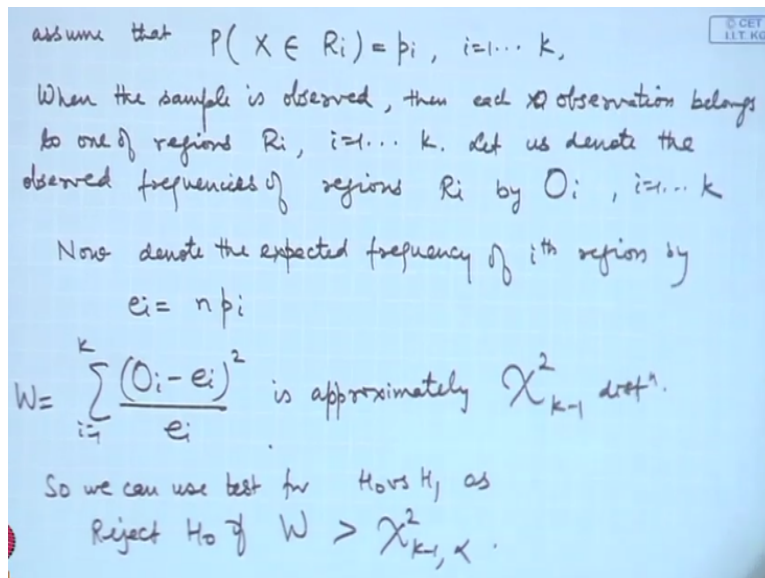 assume that P( X ∈ Ri) = pi , i=1... k,
© CET
I.I.T. KG
When the sample is observed, then each observation belongs
to one of regions Ri, i=1... k. Let us denote the
observed frequencies of regions Ri by Oi , i=1... k
Now denote the expected frequency of ith region by
ei = n pi
W = ∑_{i=1}^{k} (Oi - ei)² / ei is approximately χ²_{k-1} distⁿ.
So we can use test for H₀ vs H₁ as
Reject H₀ if W > χ²_{k-1, α} .